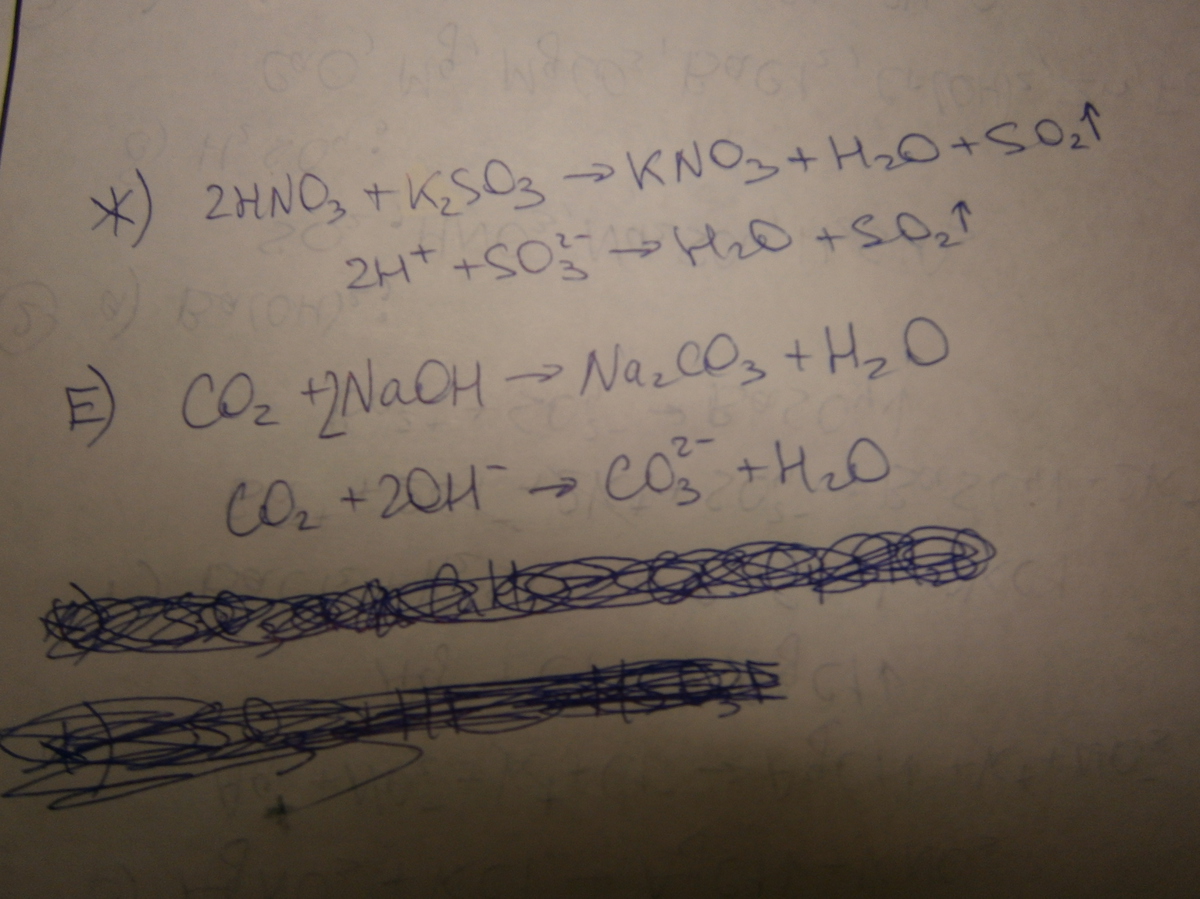 Ж) 2HNO₃ + K₂SO₃ → KNO₃ + H₂O + SO₂↑
2H⁺ + SO₃²⁻ → H₂O + SO₂↑
E) CO₂ + 2NaOH → Na₂CO₃ + H₂O
CO₂ + 2OH⁻ → CO₃²⁻ + H₂O